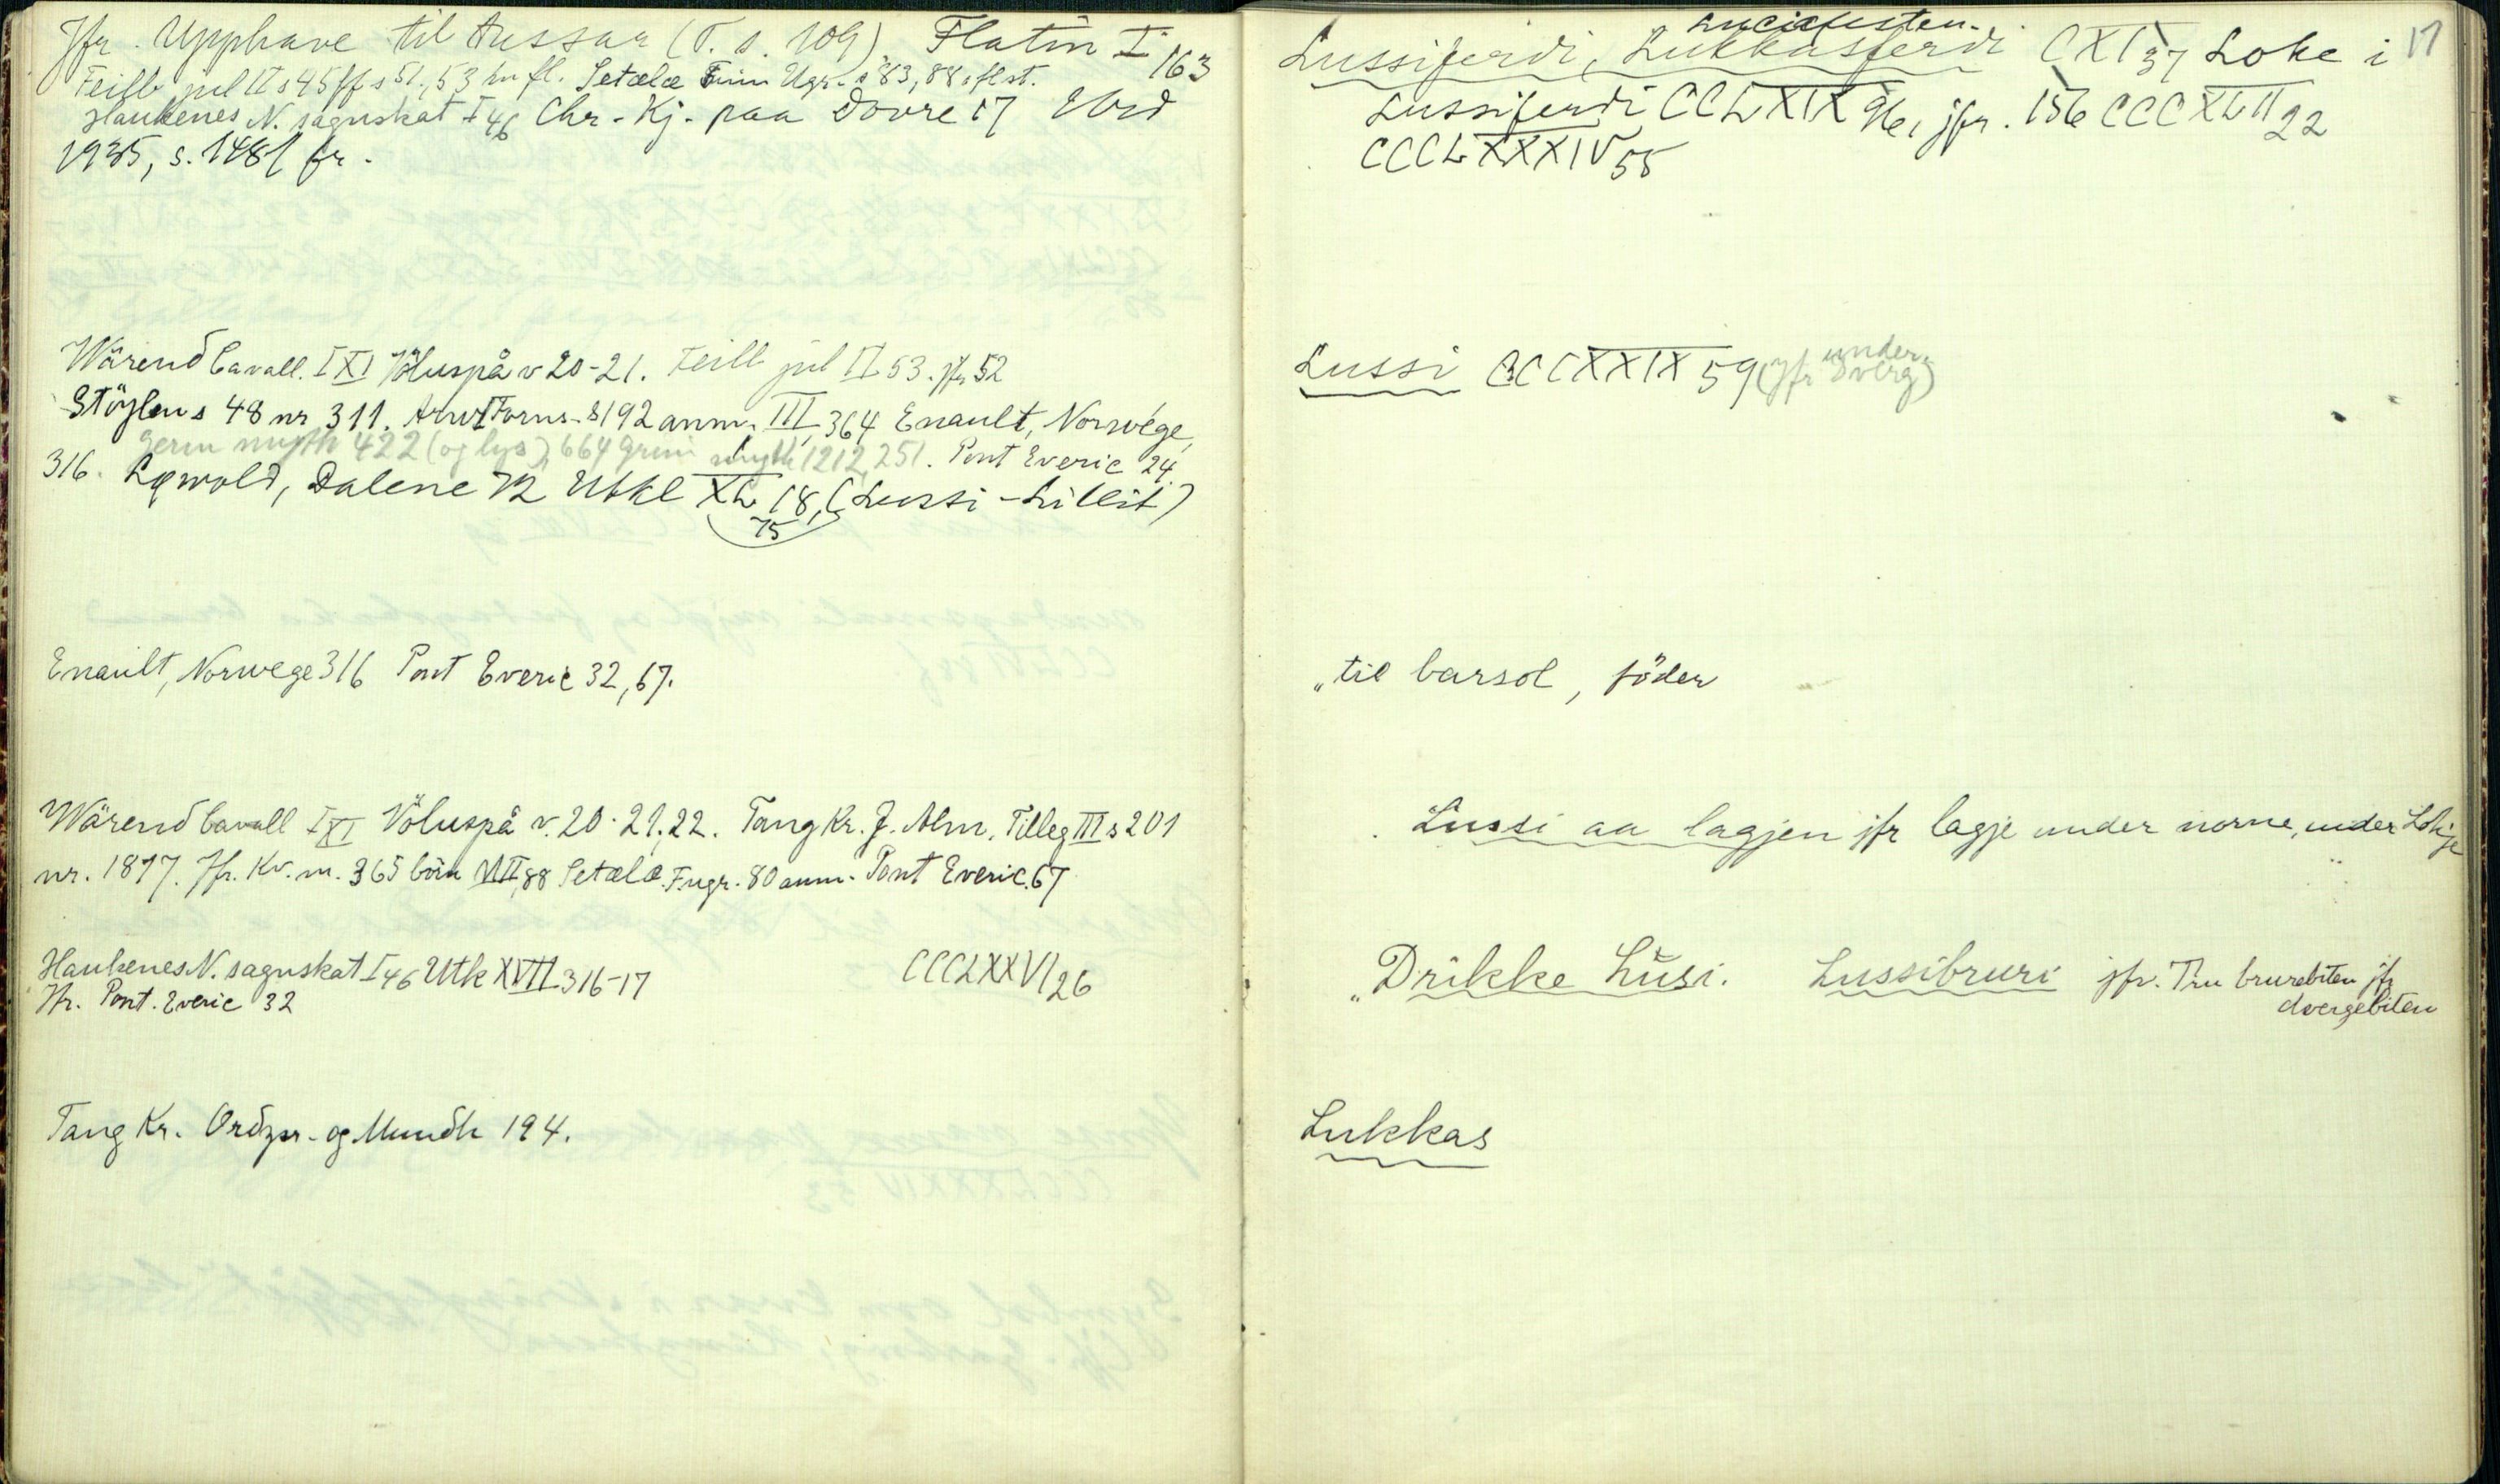 Jfr. Upphave til Aussar (T. s. 109). Flatin I 163
Feilb jul II s 45 ff s 51, 53 hn fl. Setälä Finn Ugr. s 83, 88 o fl st.
Haukenes N. sagnskat I 46 Chr. Kj. paa Dovre 17
1935, s. 1481 fr.
Wärend Cavall. I XI Völuspå v 20-21. Feilb jul II 53. jfr 52
Støylen s 48 nr 311. Arw Forns. s 192 anm. III, 364 Enault, Norvége,
Germ myth 422 (og lys), 664 Grim myth 1212, 251. Pont Everic 24.
316. Løwold, Dalene 72 Utkl XL 18, (Lussi-Lillit)
75
Enault, Norwege 316 Pont Everic 32, 67.
Wärend Cavall I XI Völuspå v. 20. 21, 22. Tang Kr. J. Alm. Tilleg III s 201
nr. 1877. Jfr. Kv. m. 365 born VIII, 88 Setälä F. ugr. 80 anm. Pont Everic. 67
Haukenes N. sagnskat I 46 Utk XVII 316-17 CCCLXXVI 26
Jfr. Pont. Everic 32
Tang Kr. Ordspr. og Mundh 194.
17
Luciafesten.
Lussiferdi, Lukkasferdi CXI 37 Loke i
Lussiferdi CCLXIX 96, jfr. 156 CCCXLII 22
CCCLXXXIV 55
Lussi CCCXXIX 59 (jfr under dverg)
"til barsol, föder
Lussi aa lagjen jfr lagje under norne, under Lokje
"Drikke Lusi. Lussibruri jfr. Tru brurebiten jfr
dvergebiten
Lukkas